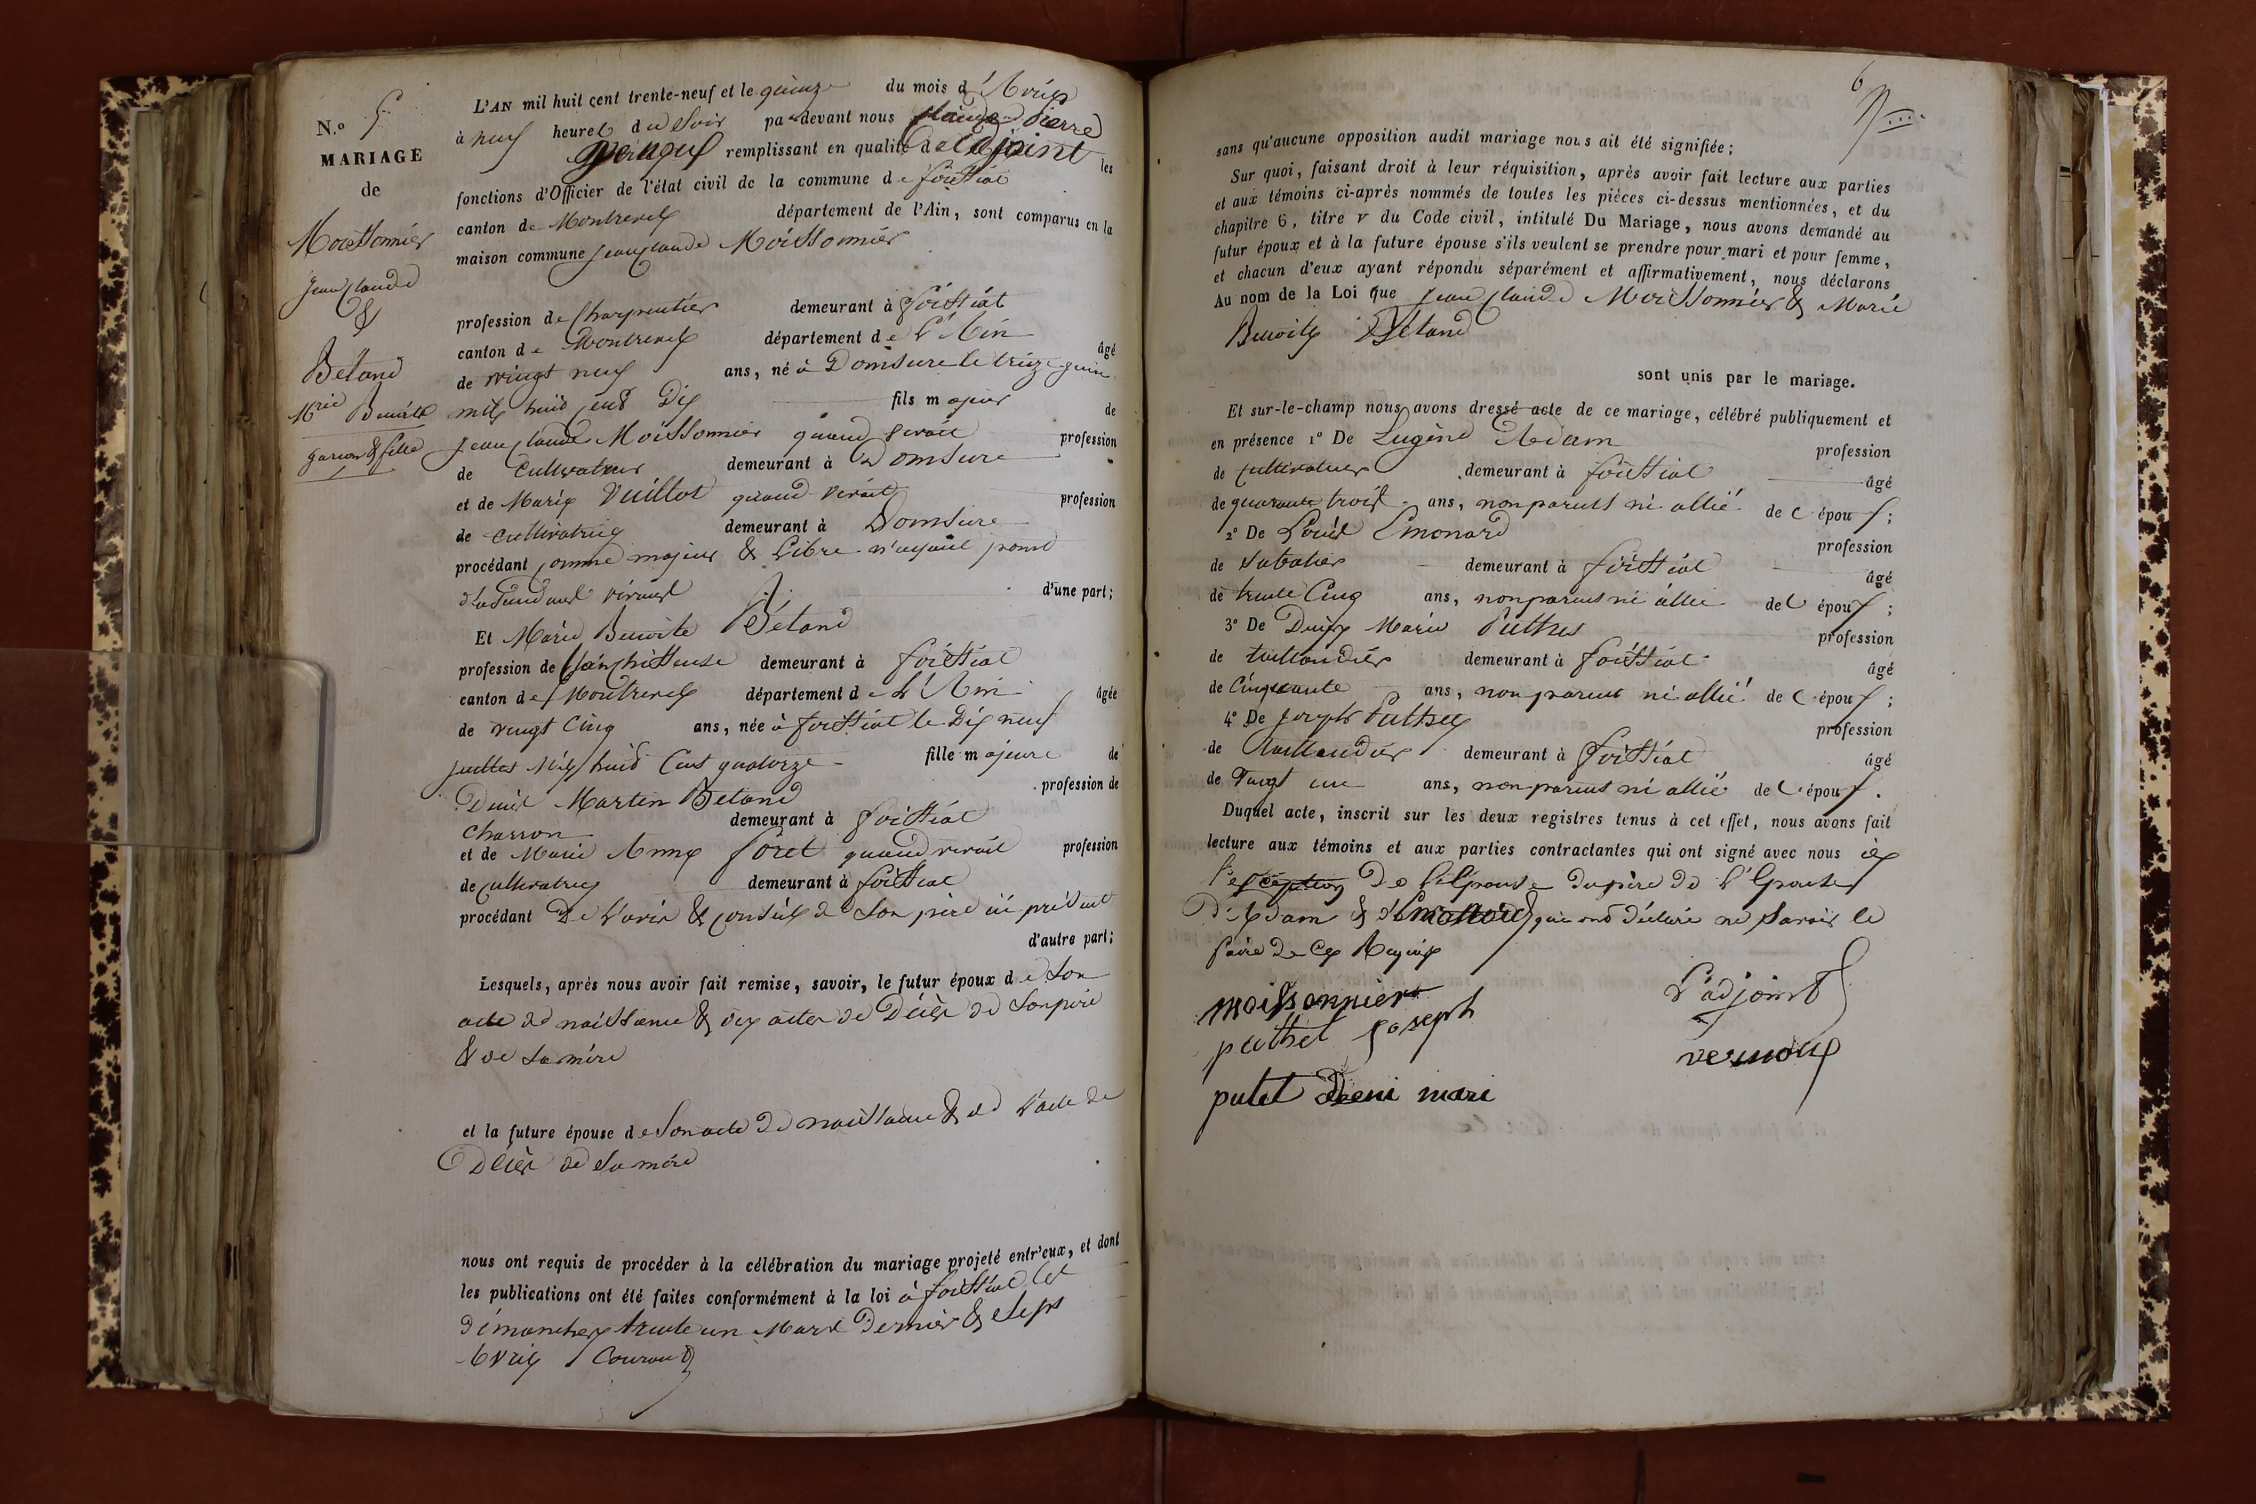 N.° 5
MARIAGE
de
Moissonnier
Jean Claude
&
Bétand
Mrie Benoite
garcon & fille
L'AN mil huit cent trente-neuf et le quinze du mois d'Avril
à neuf heures du soir par devant nous Claude Pierre
remplissant en qualité de L'adjoint les
fonctions d'Officier de l'état civil de la commune de foissiat
canton de Montrevel département de l'Ain, sont comparus en la
maison commune Jean Claude Moissonnier
profession de Charpentier demeurant à foissiat
canton de Montrevel département de L'Ain âgé
de vingt neuf ans, né à Domsure le treize juin
mil huit cent dix fils majeur de
Jean Claude Moissonnier quand vivait profession
de cultivateur demeurant à Domsure
et de Marie Vuillot quand vivait profession
de cultivatrice demeurant à Domsure
procédant comme majeur & Libre n'ayant point
d'ascendants vivants d'une part;
Et Marie Benoite Bétand
profession de blanchisseuse demeurant à foissiat
canton de Montrevel département de L'Ain âgée
de vingt cinq ans, née à foissiat le dix neuf
juillet mil huit cent quatorze fille majeure de
Denis Martin Betand profession de
charron demeurant à foissiat
et de Marie Anne foret quand vivait profession
de cultivatrice demeurant à foissiat
procédant De L'avis & conseil de son père ici présent
d'autre part;
Lesquels, après nous avoir fait remise, savoir, le futur époux de son
acte de naissance & des actes de Décès de son père
& de sa mère
et la future épouse de son acte de naissance & de L'acte de
Décès de sa mère
nous ont requis de procéder à la célébration du mariage projeté entr'eux, et dont
les publications ont été faites conformément à la loi à foissiat les
dimanches trente un Mars dernier & sept
Avril Courant
6
sans qu'aucune opposition audit mariage nous ait été signifiée;
Sur quoi, faisant droit à leur réquisition, après avoir fait lecture aux parties
et aux témoins ci-après nommés de toutes les pièces ci-dessus mentionnées, et du
chapitre 6, titre v du Code civil, intitulé Du Mariage, nous avons demandé au
futur époux et à la future épouse s'ils veulent se prendre pour mari et pour femme,
et chacun d'eux ayant répondu séparément et affirmativement, nous déclarons
Au nom de la Loi que Jean Claude Moissonnier & Marie
Benoite Bétand
sont unis par le mariage.
Et sur-le-champ nous avons dressé acte de ce mariage, célébré publiquement et
en présence 1° De Eugène Adam profession
de cultivateur demeurant à foissiat âgé
de quarante trois ans, non parent ni allié des époux;
2° De Louis Emonard profession
de sabotier demeurant à foissiat âgé
de trente Cinq ans, non parent ni allié des époux;
3° De Denis Marie Puthet profession
de taillandier demeurant à foissiat âgé
de Cinquante ans, non parent ni allié des époux;
4° De Joseph Puthet profession
de taillandier demeurant à foissiat âgé
de vingt un ans, non parent ni allié des époux.
Duquel acte, inscrit sur les deux registres tenus à cet effet, nous avons fait
lecture aux témoins et aux parties contractantes qui ont signé avec nous à
l'exception de L'Épouse du père de L'Épouse
d'Adam & d'Emonard qui ont déclaré ne savoir le
faire de ce Requis
moissonnier
puthet Joseph
putet deni mari
L'adjoint
vernoux